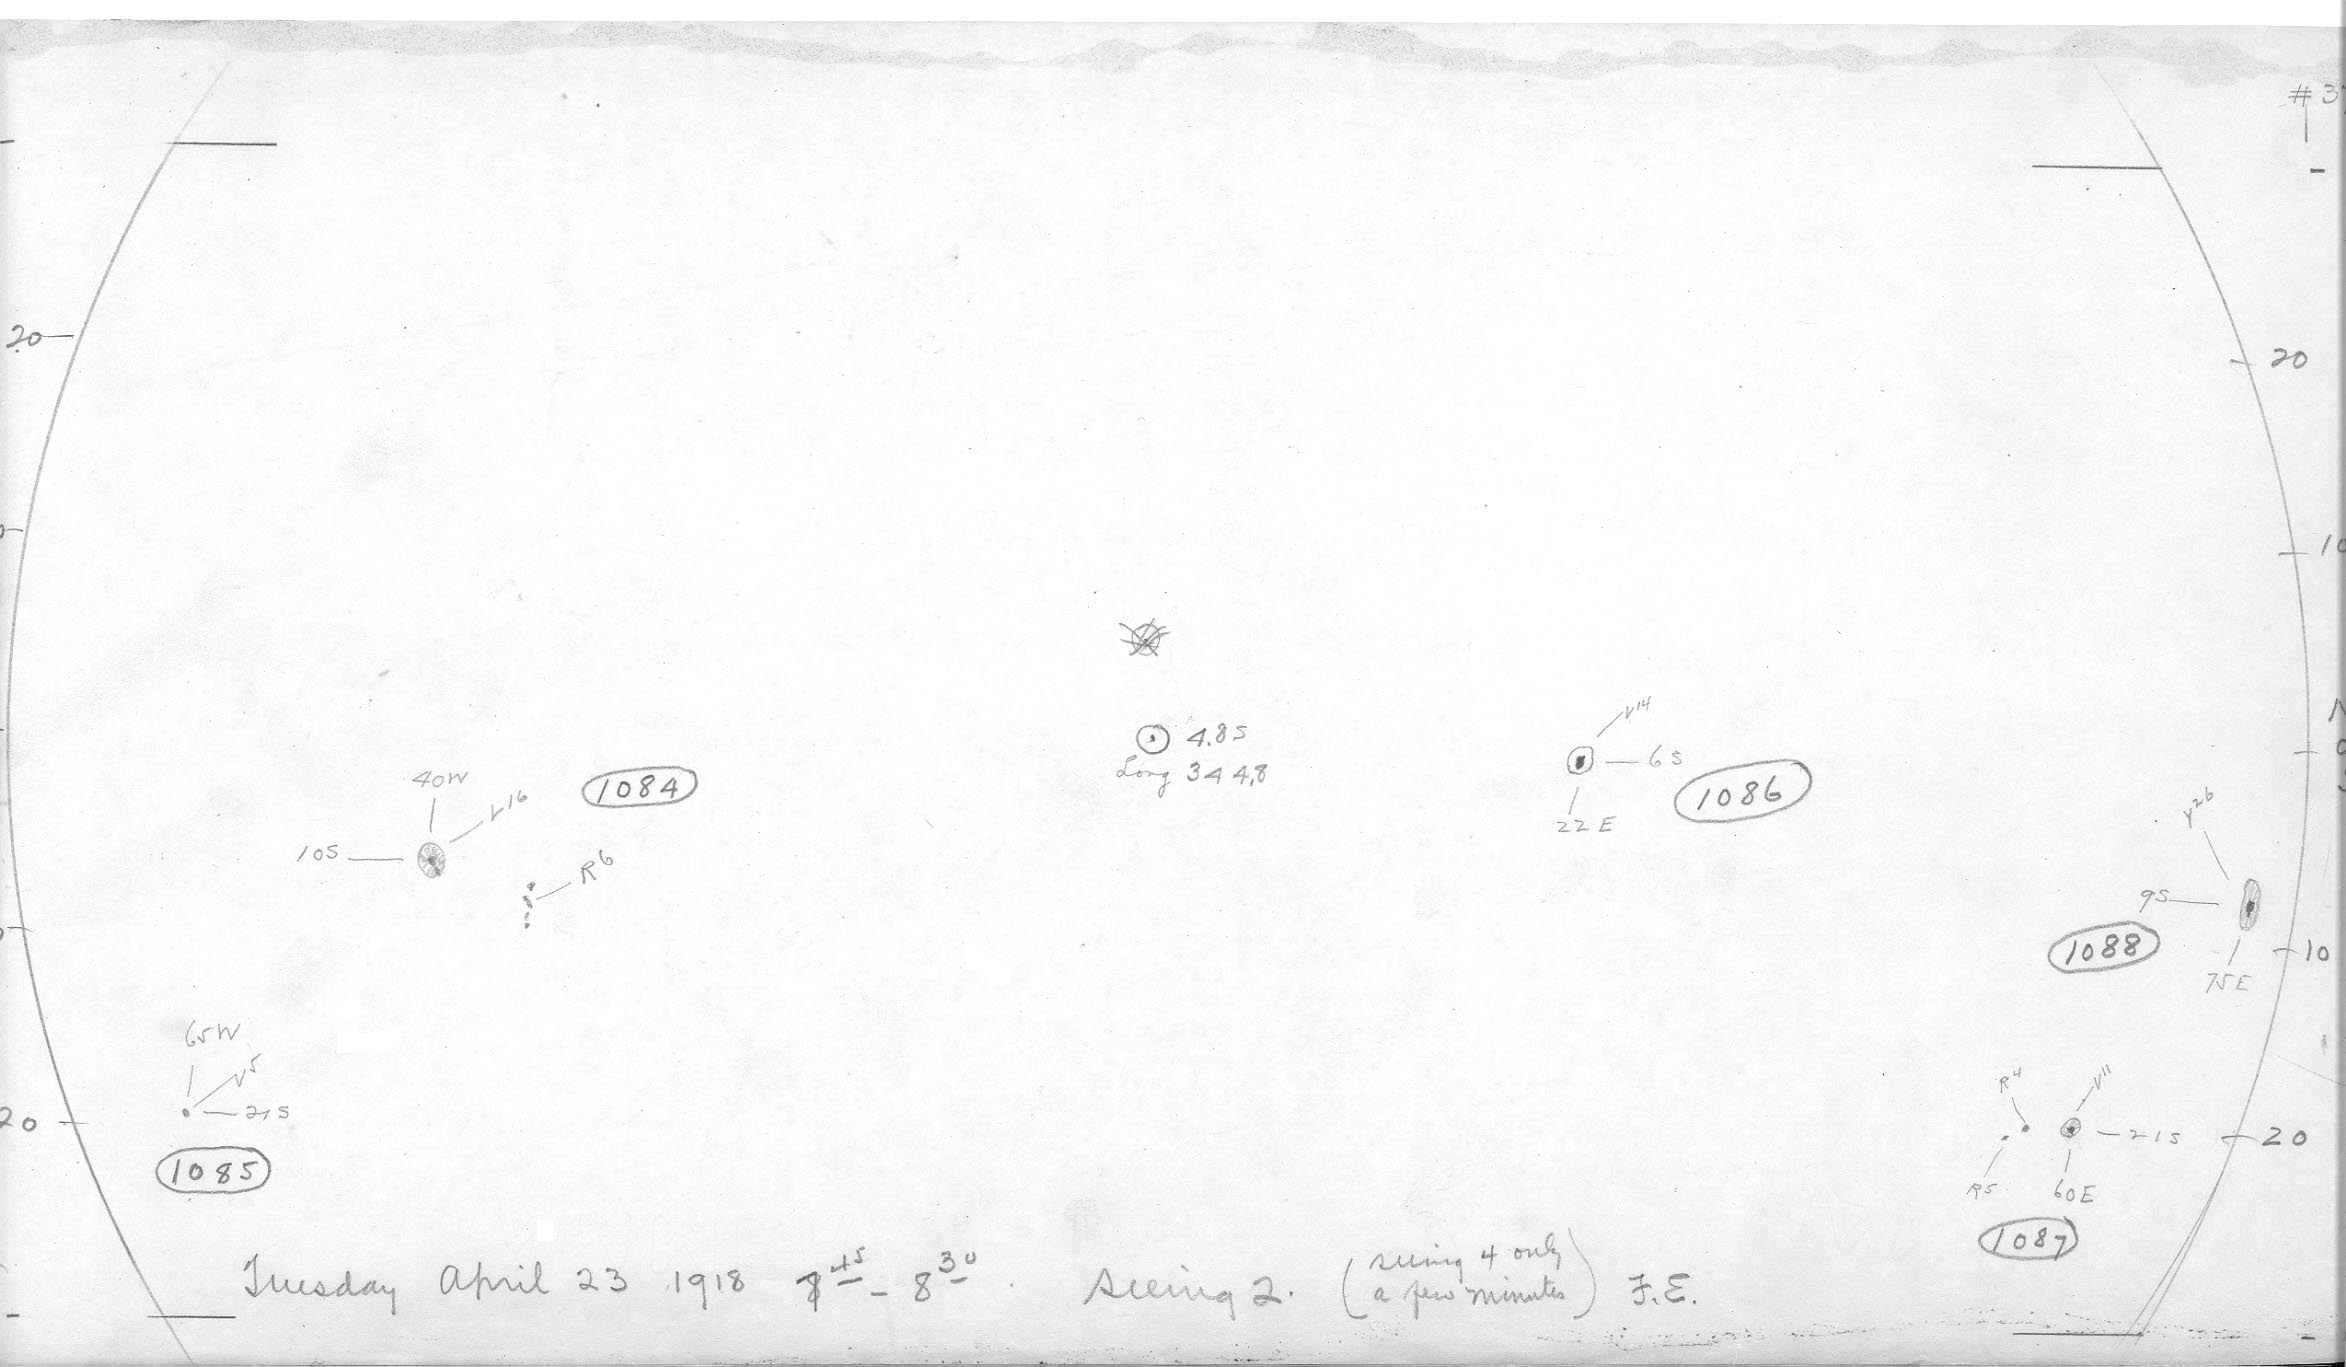 # 3
20
20
10
4.8S
Long 344.8
V14
6S
1086
22E
0
40W
V16
1084
10S
R6
V26
9S
1088
10
75E
65W
V5
21S
20
1085
R4
V11
21S
20
R5
60E
1087
Tuesday April 23 1918 7 45 - 8 30. Seeing 2. (seeing 4 only
a few minutes) F.E.